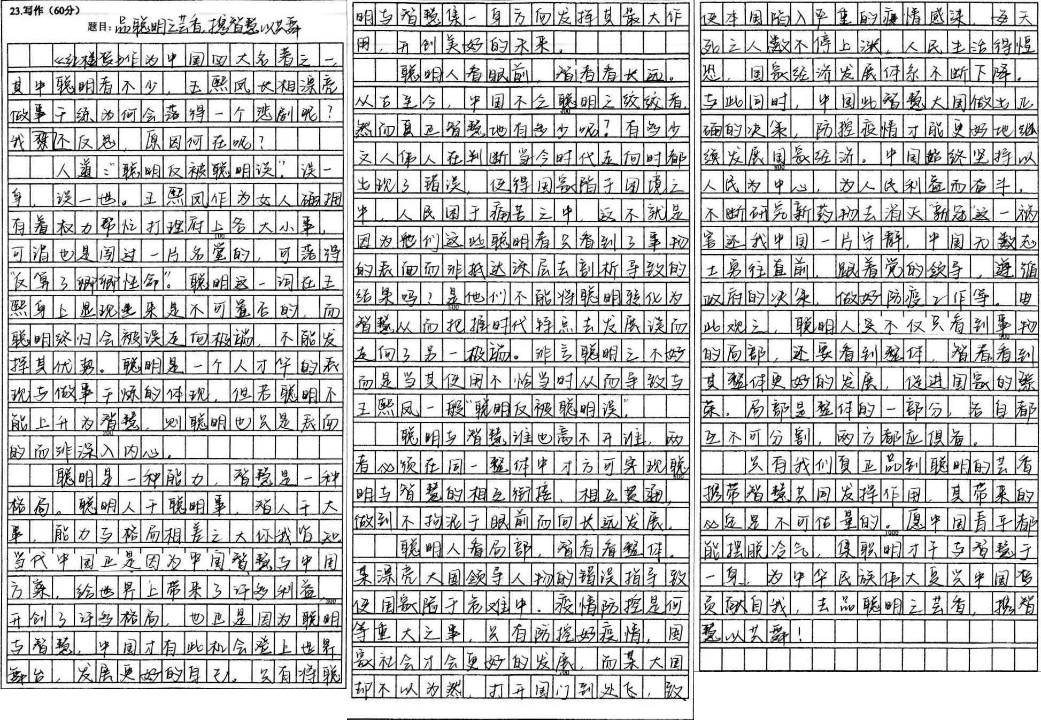 23.写作（60分）
题目：品聪明之芸香，携智慧以共舞
《红楼梦》作为中国四大名著之一，
其中聪明者不少，王熙凤长相漂亮
做事干练为何会落得一个悲剧呢？
我不反思，原因何在呢？
人道："聪明反被聪明误。"误一
身，误一世。王熙凤作为女人确拥
有着权力帮忙打理府上各大小事，
可谓也是闯过一片名堂的，可落得
"反算了卿卿性命"。聪明这一词在王
熙身上显现出来是不可置否的，而
聪明终归会被误走向极端，不能发
挥其优势。聪明是一个人才华的表
现与做事干练的体现，但若聪明不
能上升为智慧，则聪明也只是表面
的而非深入内心。
聪明是一种能力，智慧是一种
格局。聪明人干聪明事，智人干大
事，能力与格局相差之大你我皆知
当代中国正是因为中国智慧与中国
方案，给世界上带来了许多利益，
开创了许多格局，也正是因为聪明
与智慧，中国才有此机会登上世界
舞台，发展更好的自己。只有将聪
明与智慧集一身方可发挥其最大作
用，开创美好的未来。
聪明人看眼前，智者看长远。
从古至今，中国不乏聪明之佼佼者，
然而真正智慧地有多少呢？有多少
文人伟人在判断当今时代走向时都
出现了错误，使得国家陷于困境之
中，人民困于病苦之中，这不就是
因为他们这些聪明者只看到了事物
的表面而非抵达深层去剖析导致的
结果吗？是他们不能将聪明转化为
智慧从而把握时代特点去发展误而
走向了另一极端。非言聪明之不好
而是当其使用不恰当时从而导致与
王熙凤一般"聪明反被聪明误"。
聪明与智慧谁也离不开谁，两
者必须在同一整体中才方可实现聪
明与智慧的相互衔接，相互贯通，
做到不拘泥于眼前而向长远发展。
聪明人看局部，智者看整体。
某漂亮大国领导人物的错误指导致
使国家陷于危难中。疫情防控是何
等重大之事，只有防控好疫情，国
家社会才会更好的发展，而某大国
却不以为然，打开国门到处飞，致
使本国陷入严重的疫情感染，每天
死亡人数不停上涨，人民生活得惶
恐，国家经济发展体系不断下降。
与此同时，中国此智慧大国做出正
确的决策，防控疫情才能更好地继
续发展国家经济。中国始终坚持以
人民为中心，为人民利益而奋斗，
不断研究新药物去消灭"新冠"这一祸
害还我中国一片宁静，中国无数志
士勇往直前，跟着党的领导，遵循
政府的决策，做好防疫工作等。由
此观之，聪明人又不仅只看到事物
的局部，还要看到整体，智者看到
其整体更好的发展，促进国家的繁
荣，局部是整体的一部分，各自都
互不可分割，两方都应俱备。
只有我们真正品到聪明的芸香
携带智慧共同发挥作用，其带来的
必定是不可估量的。愿中国青年都
能摆脱冷气，集聪明才干与智慧于
一身，为中华民族伟大复兴中国梦
贡献自我！去品聪明之芸香，携智
慧以共舞！